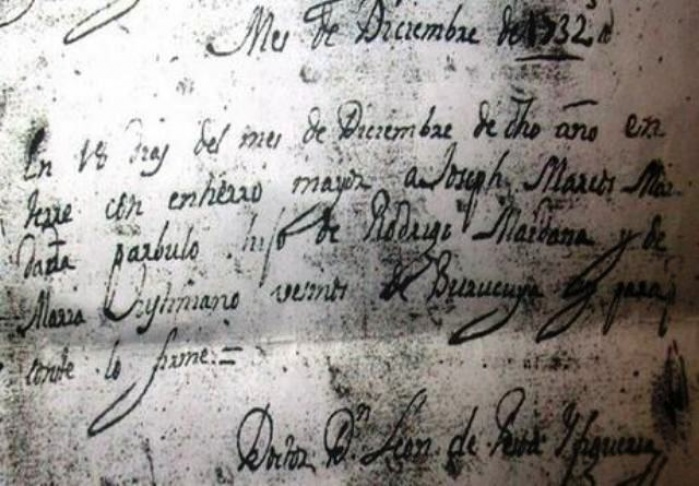 Mes de Diciembre de 1732
En 18 dias del mes de Diciembre de dho año en
terre con entierro mayor a Joseph Marcos Mal
dana parbulo hijo de Rodrigo Maldana y de
Maria vecinos de Burucuya y para q
conste lo firme =
Doctor Dn Leon de